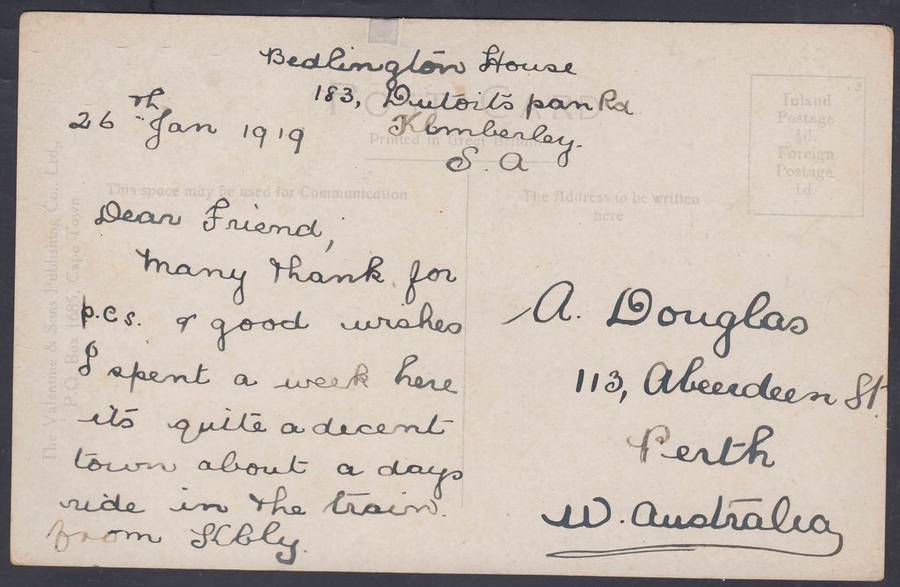 Bedlington House
183, Dutoits pan Rd
Kimberley.
S. A
26th Jan 1919
POST CARD
Printed in Great Britain
This space may be used for Communication
The Address to be written
here
Inland
Postage
½d.
Foreign
Postage
1d.
The Valentine & Sons Publishing Co., Ltd.,
P.O. Box 1685, Cape Town
Dear Friend,
Many thank for
p.cs. & good wishes
I spent a week here
its quite a decent
town about a days
ride in the train.
from Kbly.
A. Douglas
113, Aberdeen St.
Perth
W. Australia